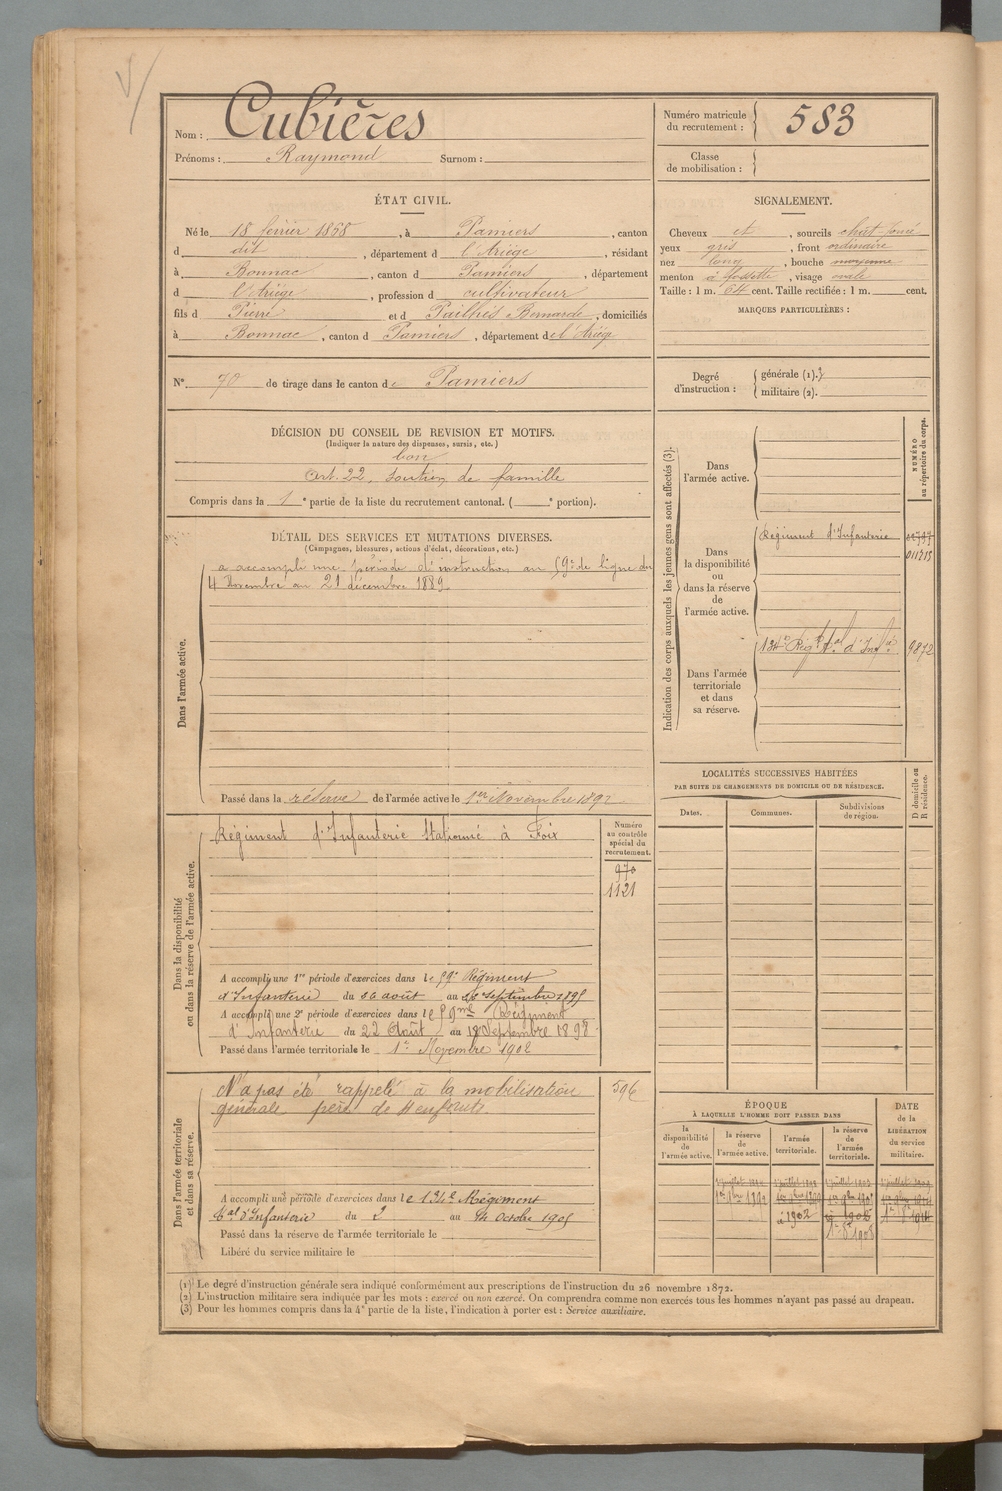 Nom : Cubières
Prénoms : Raymond Surnom :
Numéro matricule du recrutement : 583
Classe de mobilisation :
ÉTAT CIVIL.
Né le 18 février 1868, à Pamiers, canton
d dit, département d l'Ariège, résidant
à Bonnac, canton d Pamiers, département
d l'Ariège, profession d cultivateur
fils d Pierre et d Pailhès Bernarde, domiciliés
à Bonnac, canton d Pamiers, département de l'Ariège
SIGNALEMENT.
Cheveux et, sourcils chât. foncé
yeux gris, front ordinaire
nez long, bouche moyenne
menton à fossette, visage ovale
Taille : 1 m. 64 cent. Taille rectifiée : 1 m. cent.
MARQUES PARTICULIÈRES :
N° 70 de tirage dans le canton de Pamiers
Degré d'instruction : générale (1). 3
militaire (2).
DÉCISION DU CONSEIL DE REVISION ET MOTIFS.
(Indiquer la nature des dispenses, sursis, etc.)
bon
Art. 22, soutien de famille
Compris dans la 1e partie de la liste du recrutement cantonal. ( e portion).
DÉTAIL DES SERVICES ET MUTATIONS DIVERSES.
(Campagnes, blessures, actions d'éclat, décorations, etc.)
Dans l'armée active.
a accompli une période d'instruction au 59e de ligne du
4 Novembre au 21 décembre 1889
Passé dans la réserve de l'armée active le 1er Novembre 1892
Dans la disponibilité
ou dans la réserve de l'armée active.
Régiment d'Infanterie Stationné à Foix
Numéro
au contrôle
spécial du
recrutement.
970
1121
A accompli une 1re période d'exercices dans le 59e Régiment
d'Infanterie du août au septembre 1895
A accompli une 2e période d'exercices dans le 59me Régiment
d'Infanterie du 22 Août au 18 Septembre 1897
Passé dans l'armée territoriale le 1er Novembre 1902
Dans l'armée territoriale
et dans sa réserve.
N'a pas été rappelé à la mobilisation
générale père de 4 enfants
596
A accompli une période d'exercices dans le 134e Régiment
tal d'Infanterie du 2 au 14 Octobre 1905
Passé dans la réserve de l'armée territoriale le
Libéré du service militaire le
Indication des corps auxquels les jeunes gens sont affectés (3).
NUMÉRO
au répertoire du corps.
Dans
l'armée active.
Dans
la disponibilité
ou
dans la réserve
de
l'armée active.
Régiment d'Infanterie
011715
Dans l'armée
territoriale
et dans
sa réserve.
134e Régt tal d'Infie
9872
LOCALITÉS SUCCESSIVES HABITÉES
PAR SUITE DE CHANGEMENTS DE DOMICILE OU DE RÉSIDENCE.
Dates.
Communes.
Subdivisions
de région.
D domicile ou
R résidence.
ÉPOQUE
À LAQUELLE L'HOMME DOIT PASSER DANS
la
disponibilité
de
l'armée active.
la réserve
de
l'armée active.
l'armée
territoriale.
la réserve
de
l'armée
territoriale.
DATE
de la
LIBÉRATION
du service
militaire.
à 1902
(1) Le degré d'instruction générale sera indiqué conformément aux prescriptions de l'instruction du 26 novembre 1872.
(2) L'instruction militaire sera indiquée par les mots : exercé ou non exercé. On comprendra comme non exercés tous les hommes n'ayant pas passé au drapeau.
(3) Pour les hommes compris dans la 4e partie de la liste, l'indication à porter est : Service auxiliaire.